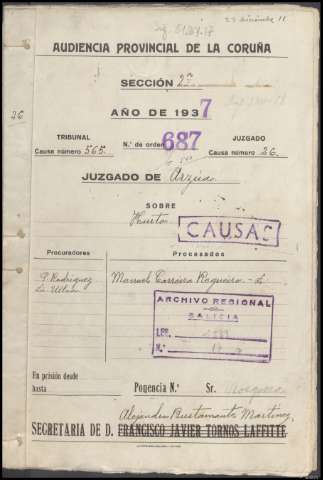 AUDIENCIA PROVINCIAL DE LA CORUÑA
SECCIÓN 2ª
AÑO DE 1937
26
TRIBUNAL
Causa número 565.
N.º de orden 687
JUZGADO
Causa número 26.
JUZGADO DE Arzúa
SOBRE
Hurto
CAUSAS
Procuradores
Procesados
P. Rodriguez
de Ulloa
Manuel Carreira Raqueiro
ARCHIVO REGIONAL
DE
GALICIA
LEG.
N.º
En prisión desde
hasta
Ponencia N.º
Sr.
Alejandro Bustamante Martinez
SECRETARIA DE D. FRANCISCO JAVIER TORNOS LAFFITTE